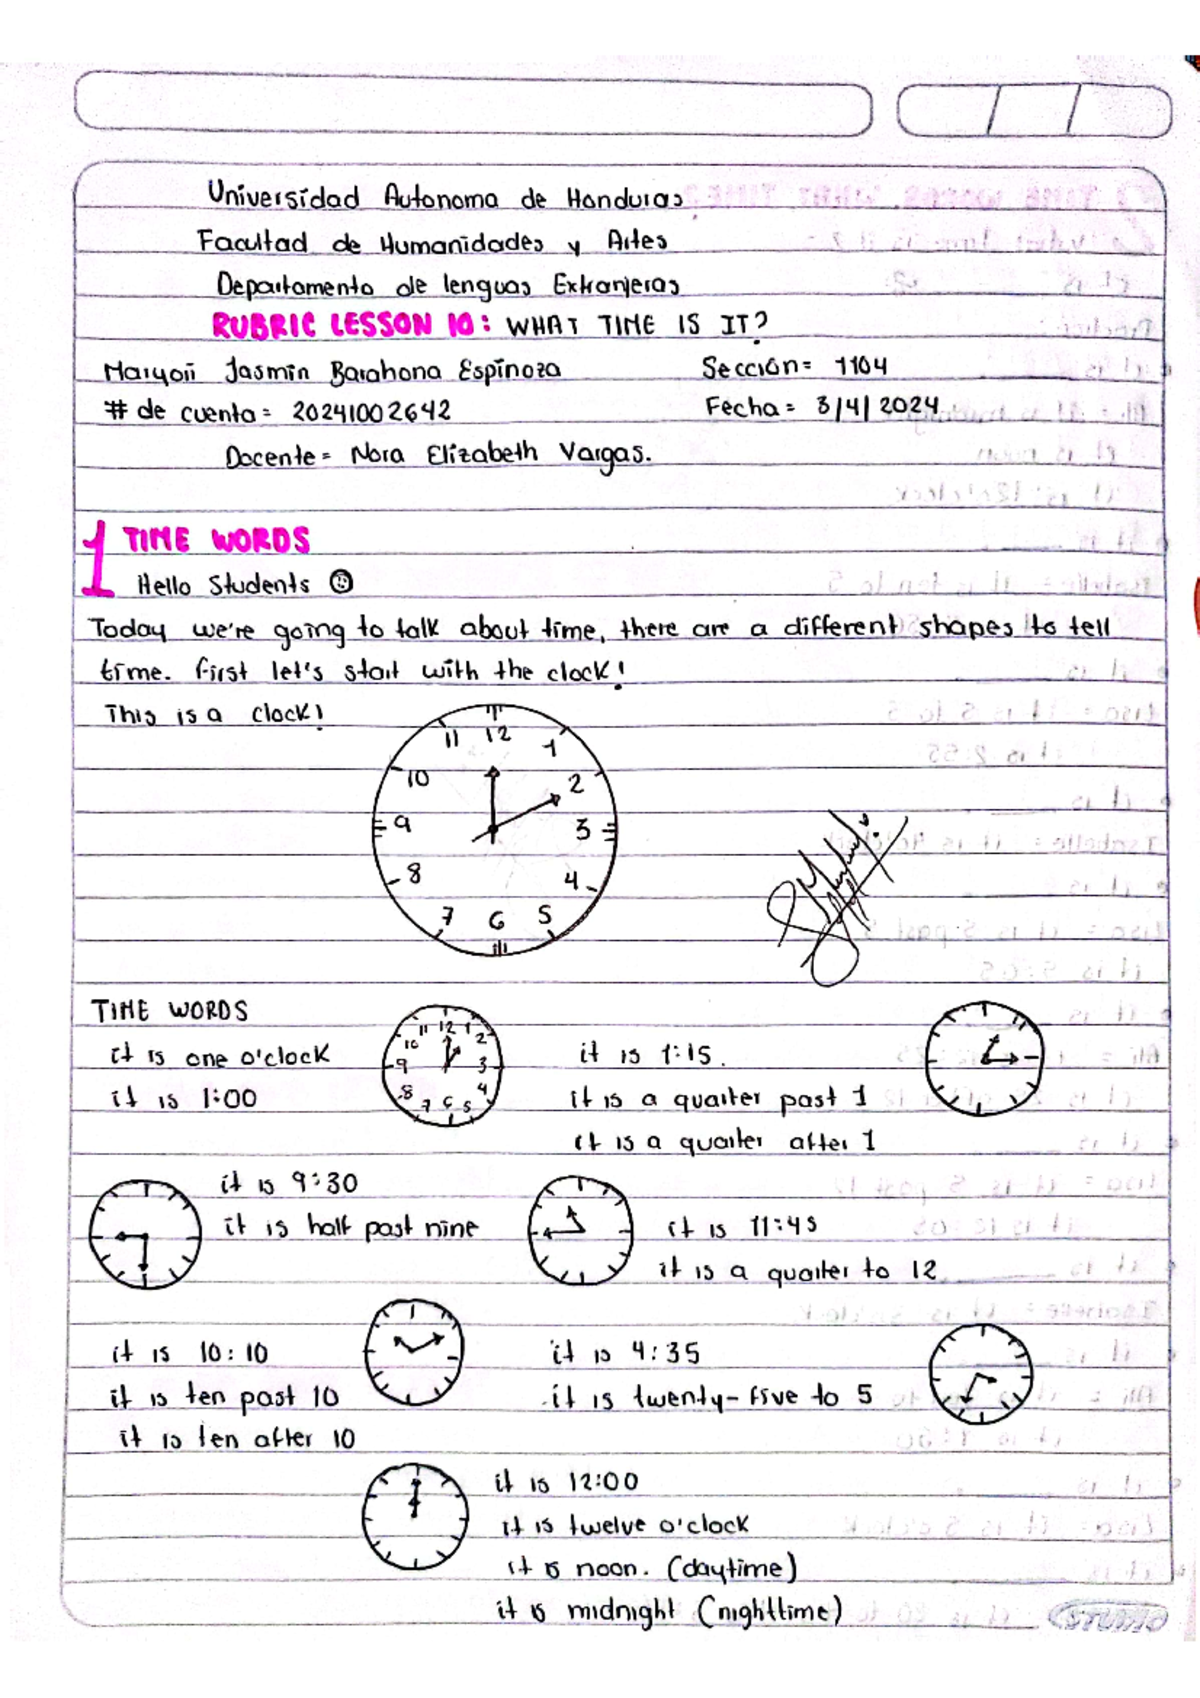 Universidad Autonoma de Honduras
Facultad de Humanidades y Artes
Departamento de lenguas Extranjeras
RUBRIC LESSON 10: WHAT TIME IS IT?
Maryorii Jasmin Barahona Espinoza Sección= 1104
# de cuenta= 20241002642 Fecha= 3/4/2024
Docente= Nora Elizabeth Vargas.
1 TIME WORDS
Hello Students
Today we're going to talk about time, there are a different shapes to tell
time. First let's start with the clock!
This is a clock!
11 12 1
10 2
9 3
8 4
7 6 5
TIME WORDS
it is one o'clock
it is 1:00
11 12 1
10 2
9 3
8 4
7 6 5
it is 1:15.
it is a quarter past 1
it is a quarter after 1
it is 9:30
it is half past nine
it is 11:45
it is a quarter to 12
it is 10:10
it is ten past 10
it is ten after 10
it is 4:35
it is twenty-five to 5
it is 12:00
it is twelve o'clock
it is noon. (daytime)
it is midnight (nighttime)
STUDIO